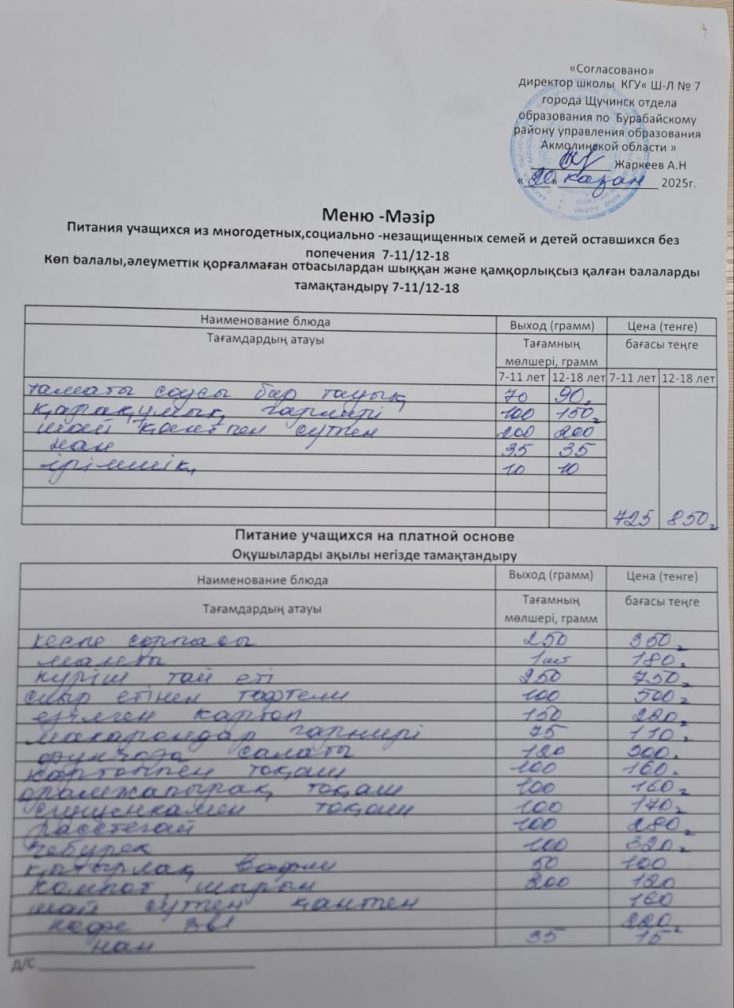 «Согласовано»
директор школы КГУ« Ш-Л № 7
города Щучинск отдела
образования по Бурабайскому
району управления образования
Акмолинской области »
Жаркеев А.Н
« 20 » казан 2025г.
Меню -Мәзір
Питания учащихся из многодетных,социально -незащищенных семей и детей оставшихся без
попечения 7-11/12-18
Көп балалы,әлеуметтік қорғалмаған отбасылардан шыққан және қамқорлықсыз қалған балаларды
тамақтандыру 7-11/12-18
Наименование блюда Выход (грамм) Цена (тенге)
Тағамдардың атауы Тағамның мөлшері, грамм бағасы теңге
7-11 лет 12-18 лет 7-11 лет 12-18 лет
таматы соусы бар тауық 70 90
қарақұмық гарнирі 100 150
шай қантпен сүтпен 200 200
нан 35 35
ірімшік 10 10
725 850
Питание учащихся на платной основе
Оқушыларды ақылы негізде тамақтандыру
Наименование блюда Выход (грамм) Цена (тенге)
Тағамдардың атауы Тағамның мөлшері, грамм бағасы теңге
кеспе сорпасы 250 350
1шт 180
күріш тай еті 250 750
сиыр етінен тефтели 100 500
езілген картоп 150 280
макарондар гарнирі 75 110
салаты 120 300
картоппен тоқаш 100 160
орамжапырақ тоқаш 100 160
сгущенкамен тоқаш 100 170
расстегай 100 280
чебурек 100 320
қытырлақ вафли 50 100
компот, шырын 200 120
шай сүтпен қантпен 160
кофе 3в1 220
нан 35 15
Д/С